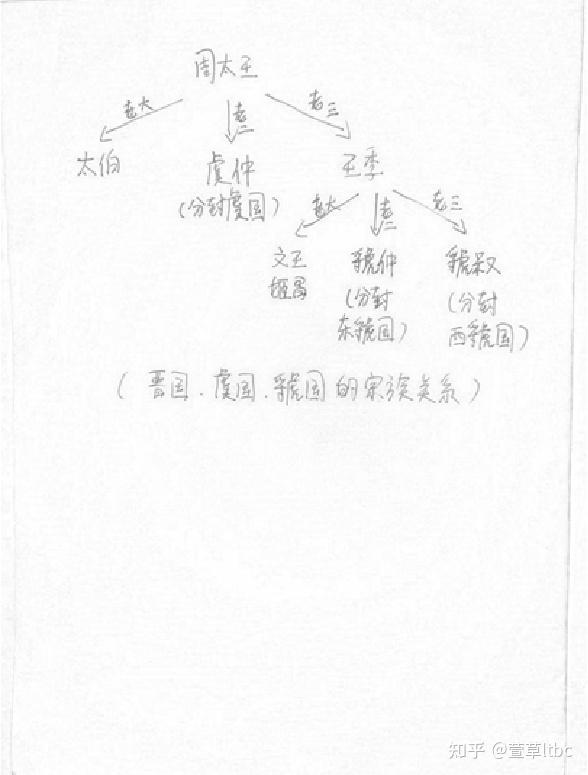 周太王
老大 老二 老三
太伯 虞仲 王季
(分封虞国)
老大 老二 老三
文王 虢仲 虢叔
姬昌 (分封 (分封
东虢国) 西虢国)
(晋国.虞国.虢国的宗族关系)
知乎 @萱草ltbc